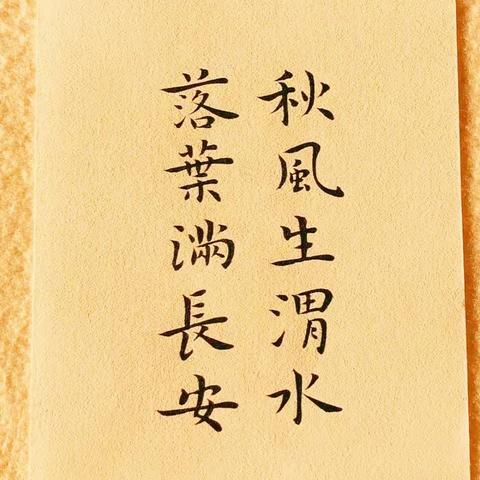 秋風生渭水
落葉滿長安